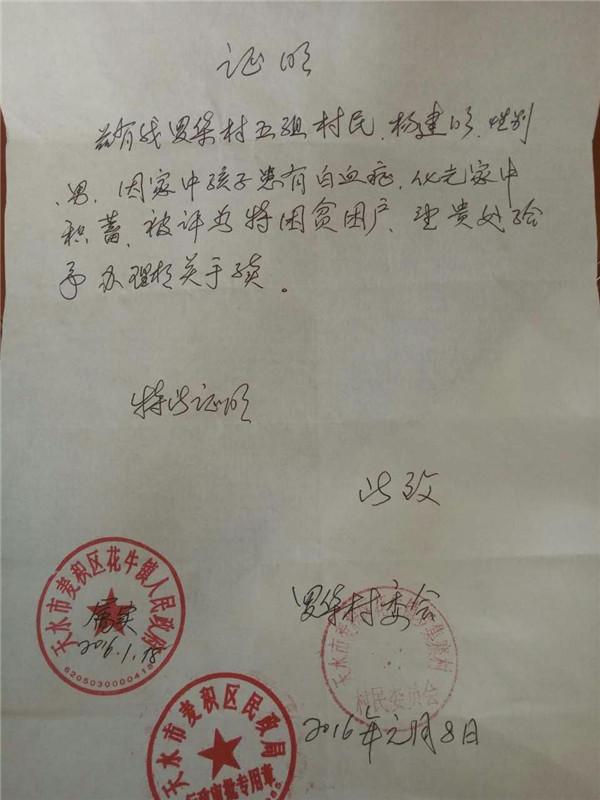 证明
兹有我罗集村五组村民，杨建明，性别
男，因家中孩子患有白血病，化光家中
积蓄，被评为特困贫困户，望贵处给
予办理相关手续。
特此证明
此致
罗集村委会
2016年元月8日
天水市麦积区花牛镇人民政府
属实
2016.1.18
天水市麦积区民政局
专用章
村民委员会